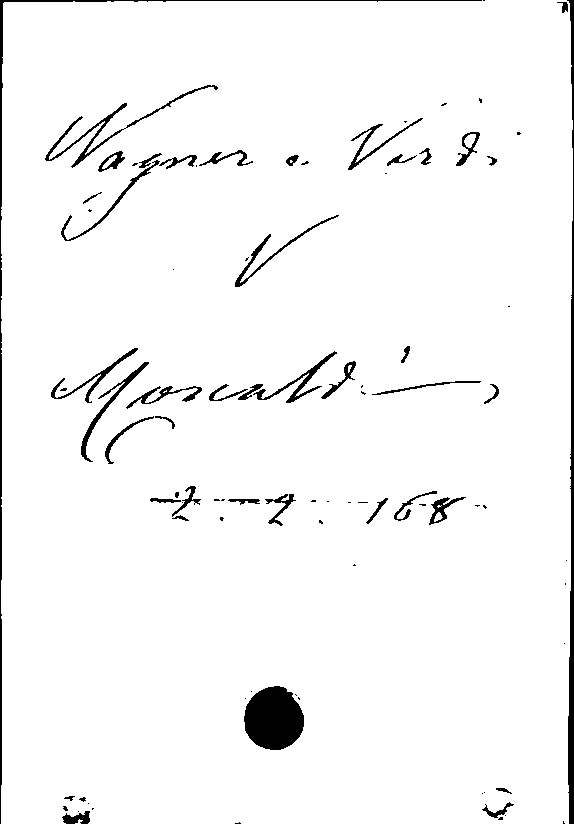 Wagner e Verdi
V
Moscaldi,
2. 2. 168